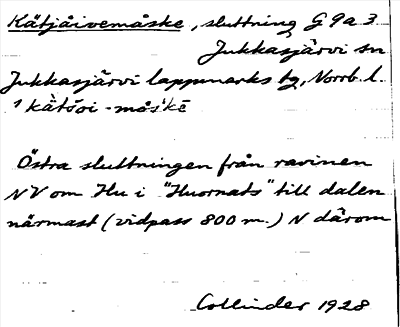 Kätjåivemåske, sluttning G 9 a 3
Jukkasjärvi sn
Jukkasjärvi lappmarks tg, Norrb. l.
Östra sluttningen från ravinen
NV om Hu i "Huornats" till dalen
närmast (vidpass 800 m.) N därom
Collinder 1928